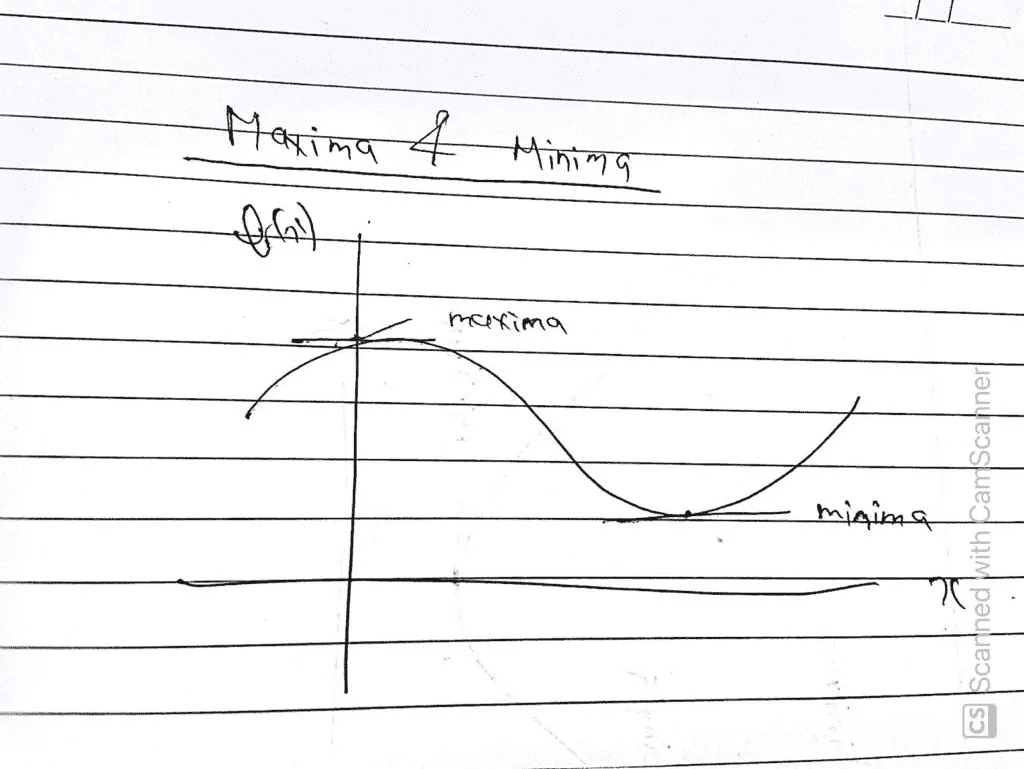 Maxima & Minima
f(x)
maxima
minima
x
CS Scanned with CamScanner